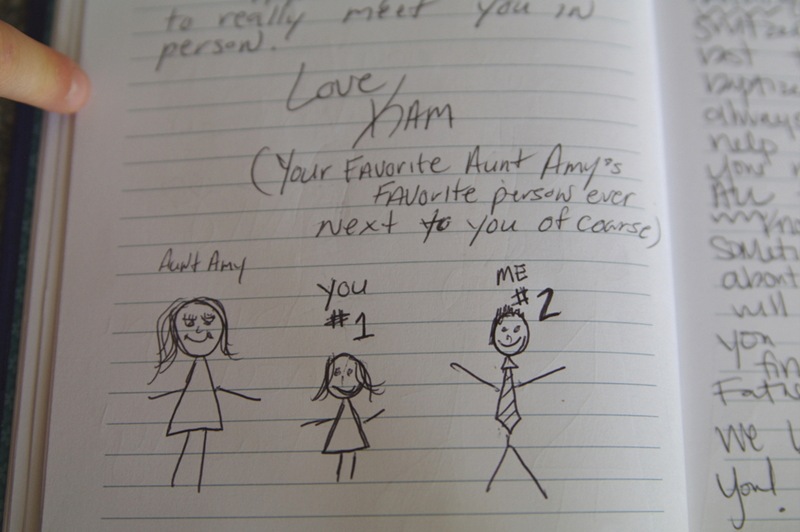 to really meet you in
person.
Love
KAM
(Your Favorite Aunt Amy's
Favorite person ever
next to you of coarse)
Aunt Amy
YOU
#1
ME
#2
always
help
you
All
about
will
you
We
you!